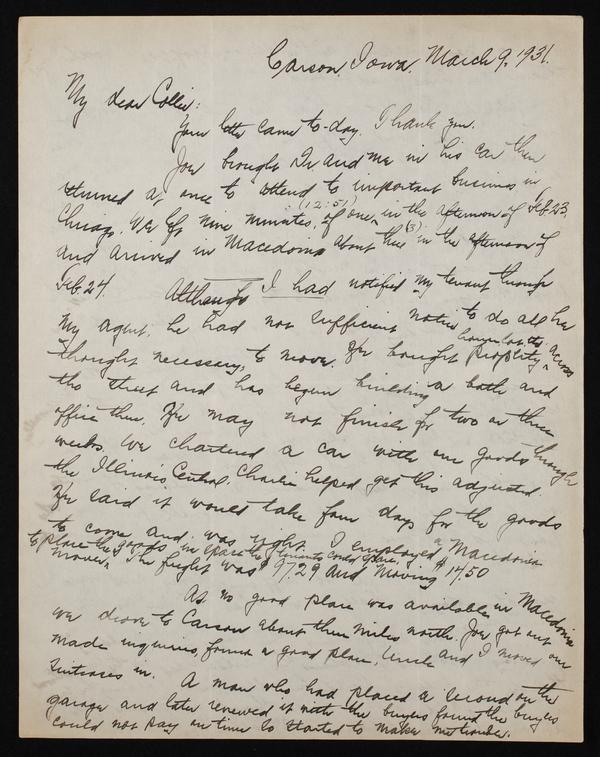 Carson, Iowa. March 9, 1931.
My dear Collie:
Your letter came to-day. Thank you.
Joe brought Dr and me in his car then
returned at once to attend to important business in
Chicago. We left nine minutes of one, (12:51) in the afternoon of Feb. 23,
and arrived in Macedonia about three (3) in the afternoon of
Feb. 24. Although I had notified my tenant through
my agent, he had not sufficient notice to do all he
thought necessary, to move. He bought property across
the street and has begun building a bath and
office there. He may not finish for two or three
weeks. We chartered a car with our goods through
the Illinois Central. Charlie helped get this adjusted.
He said it would take four days for the goods
to come and was right. I employed a Macedonia
to place the goods in space the tenants could spare.
mover. The freight was $97.29 and moving $14.50
As no good place was available in Macedonia
we drove to Carson about three miles north. Joe got out
made inquiries, found a good place, and I moved our
suitcases in. A man who had placed a second on the
garage and later renewed it with the buyers found the buyers
could not pay on time so started to make me trouble.